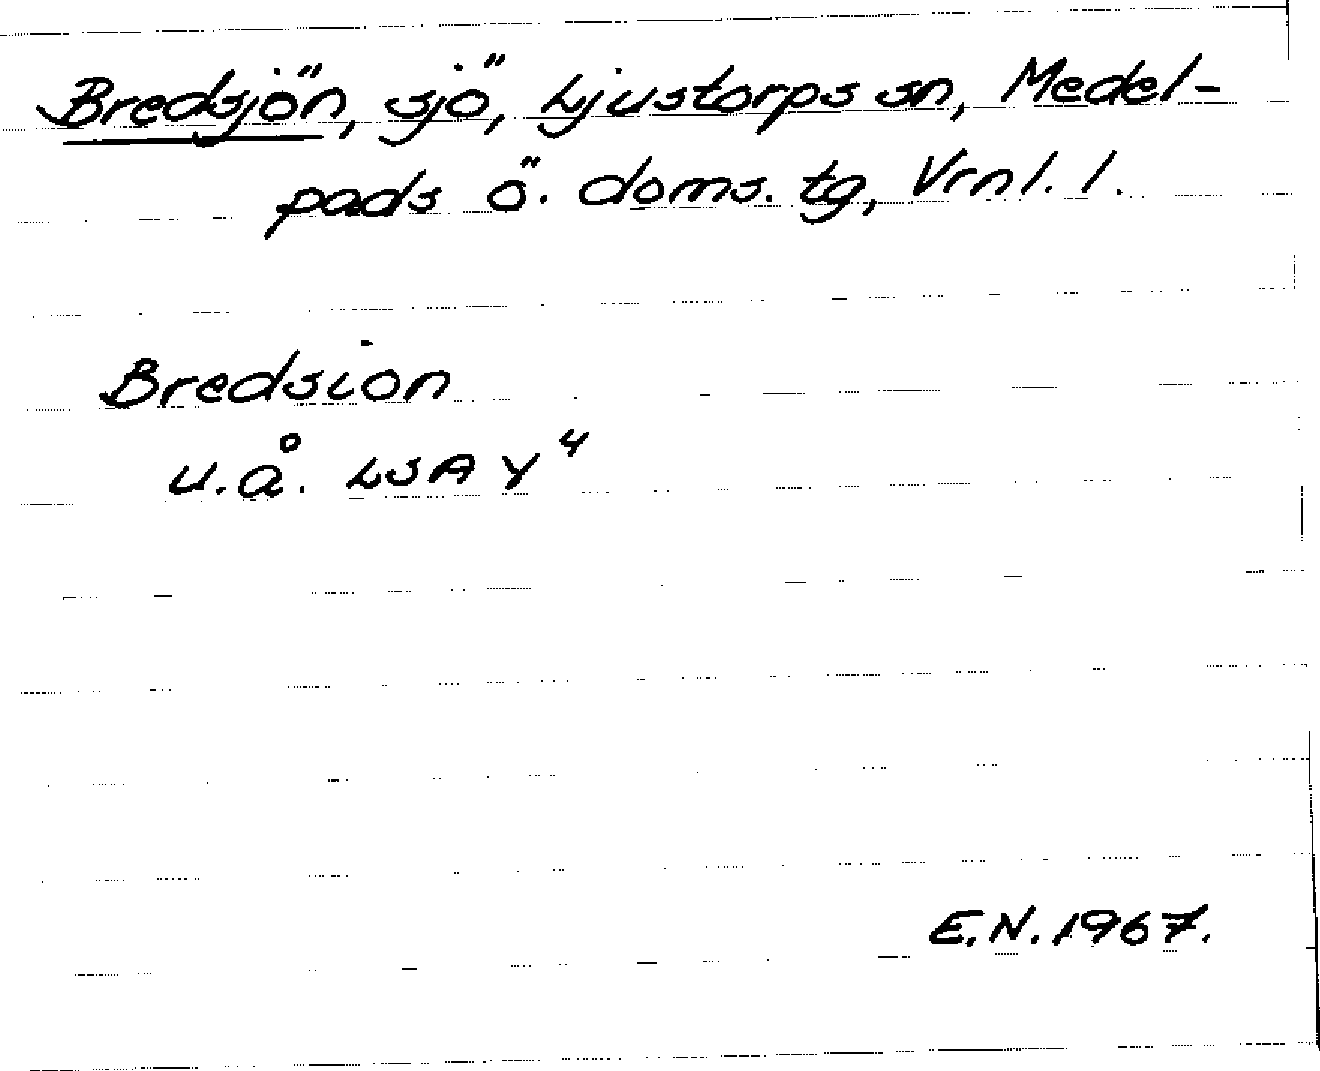 Bredsjön, sjö, Ljustorps sn, Medel-
pads ö. doms. tg, Vrnl. l.
Bredsion
u.å. LSA Y 4
E.N. 1967.